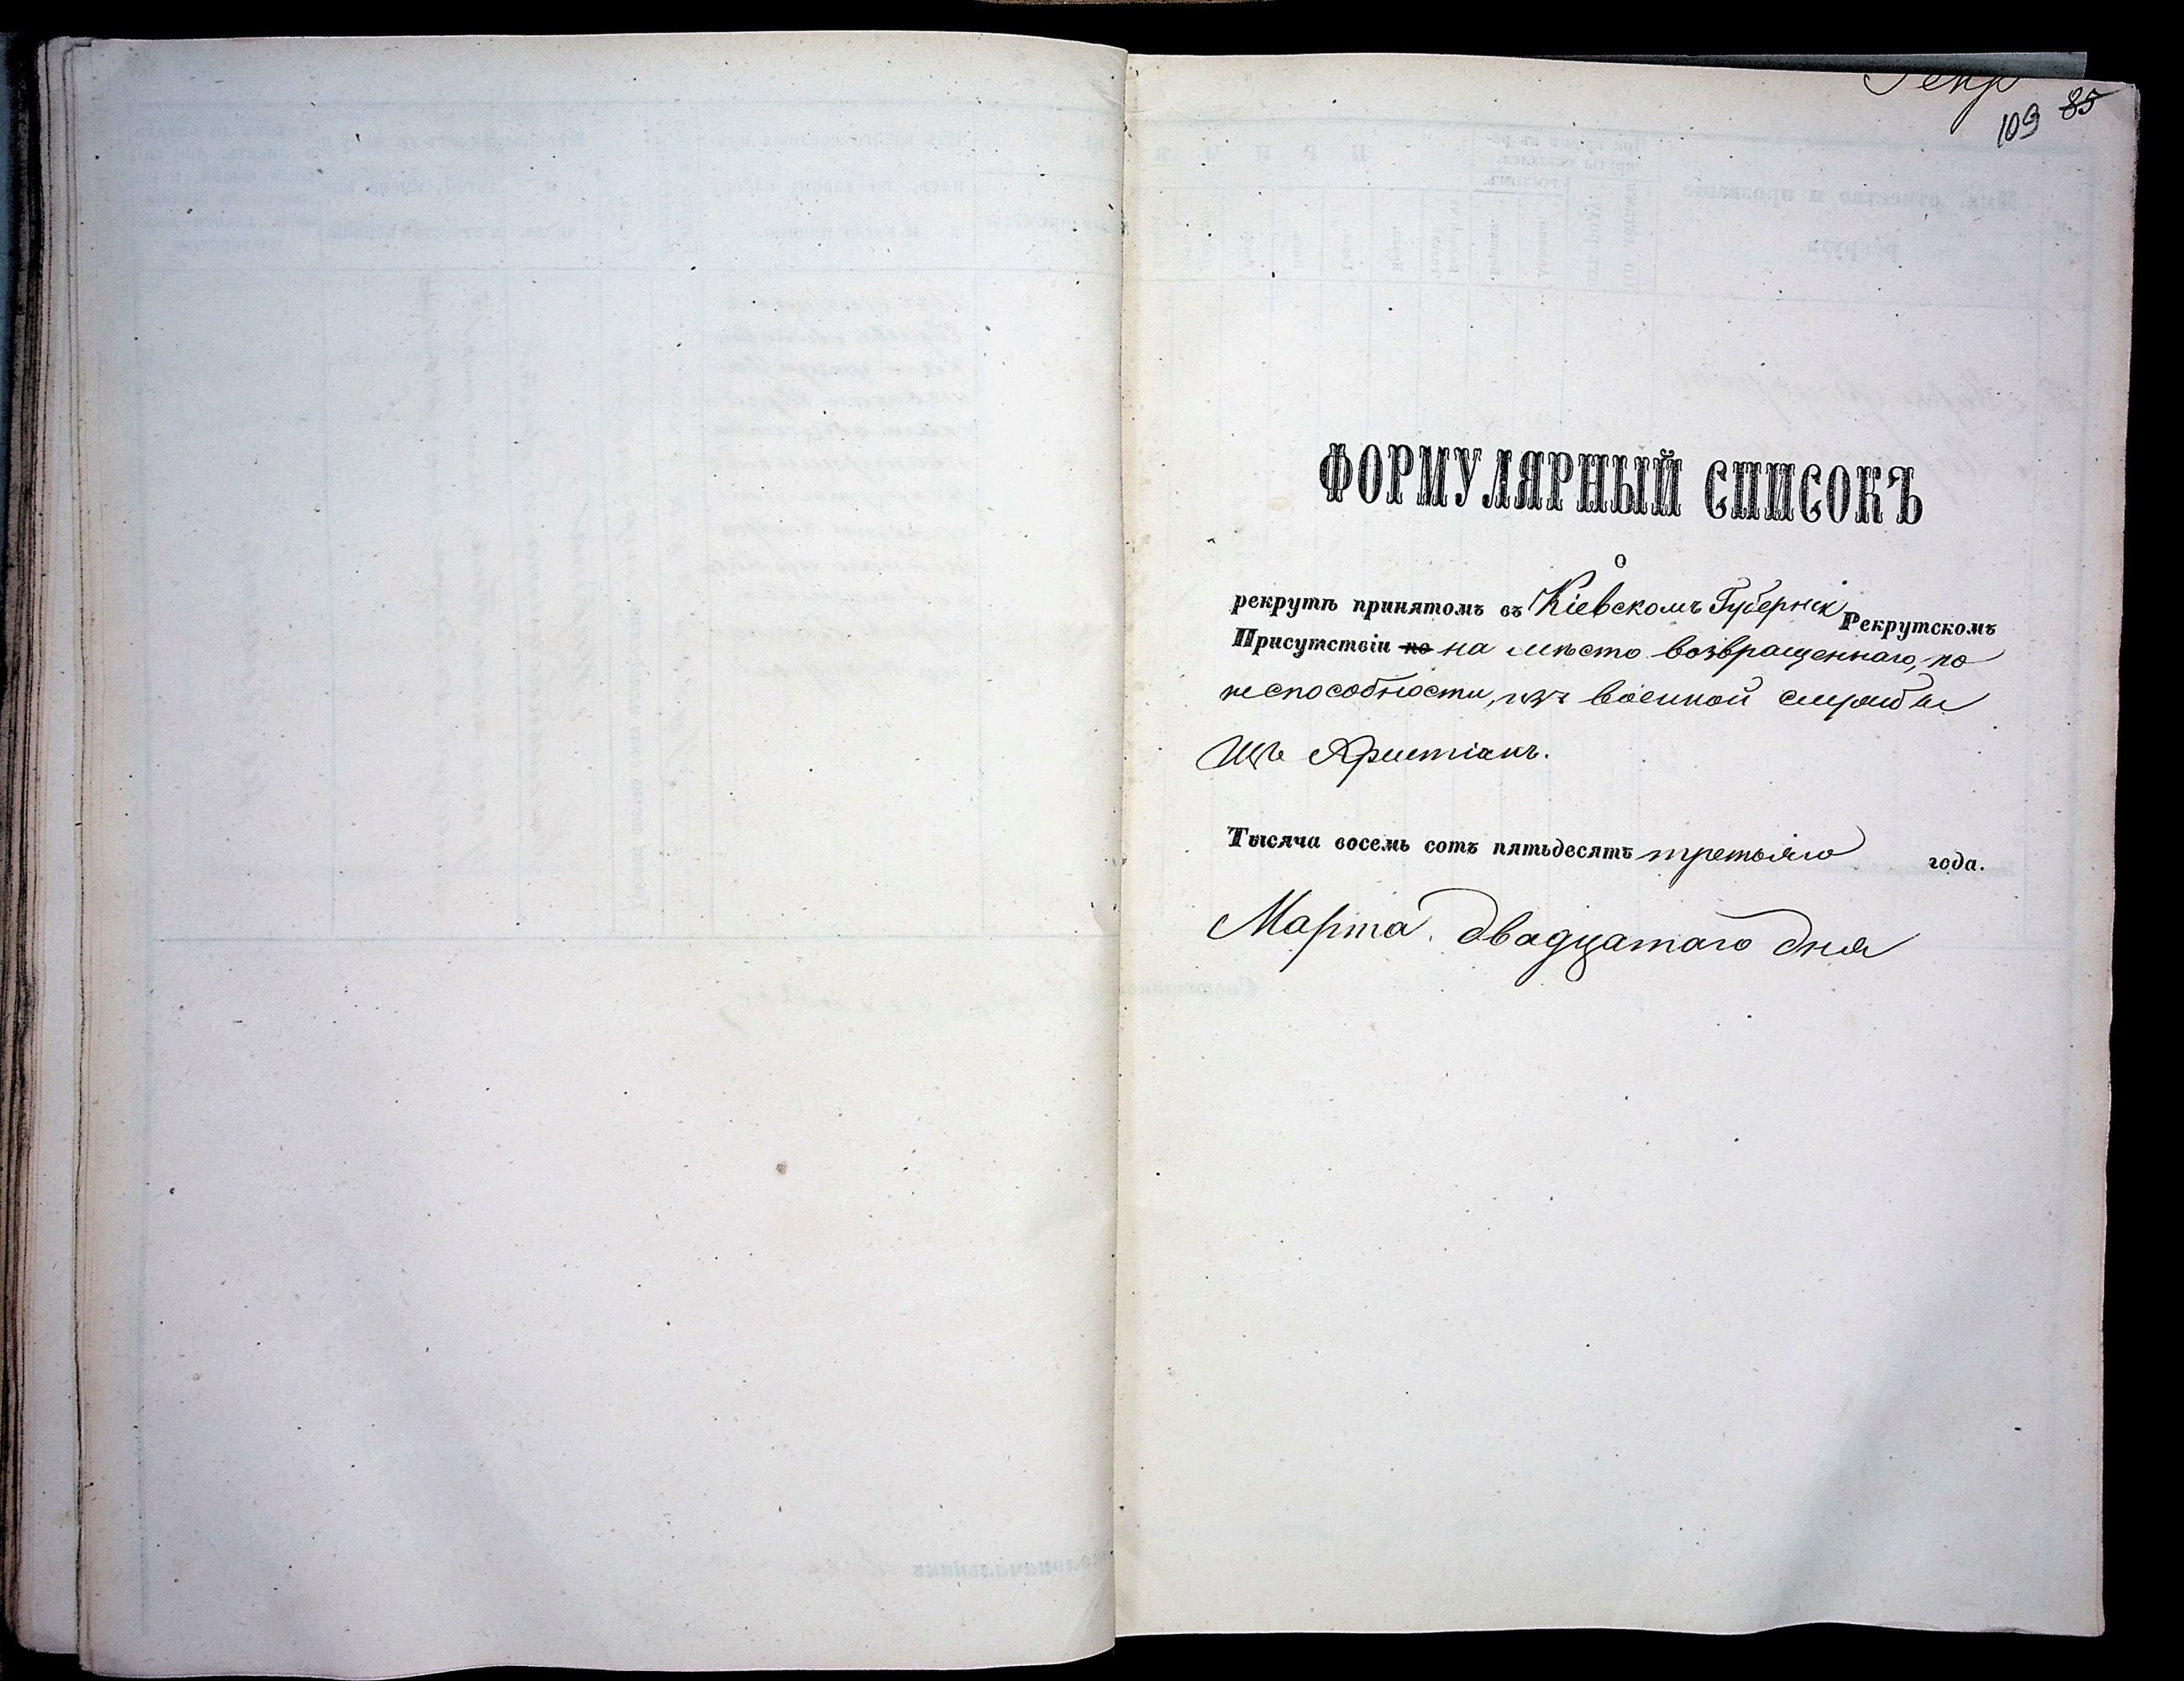 109 85
ФОРМУЛЯРНЫЙ СПИСОКЪ
о
рекрутѣ принятомъ въ Кіевскомъ Губернск Рекрутскомъ
Присутствіи по на мѣсто возвращеннаго, по
неспособности, изъ военной службы
Изъ Христіанъ.
Тысяча восемь сотъ пятьдесятъ третьяго года.
Марта двадцатаго дня